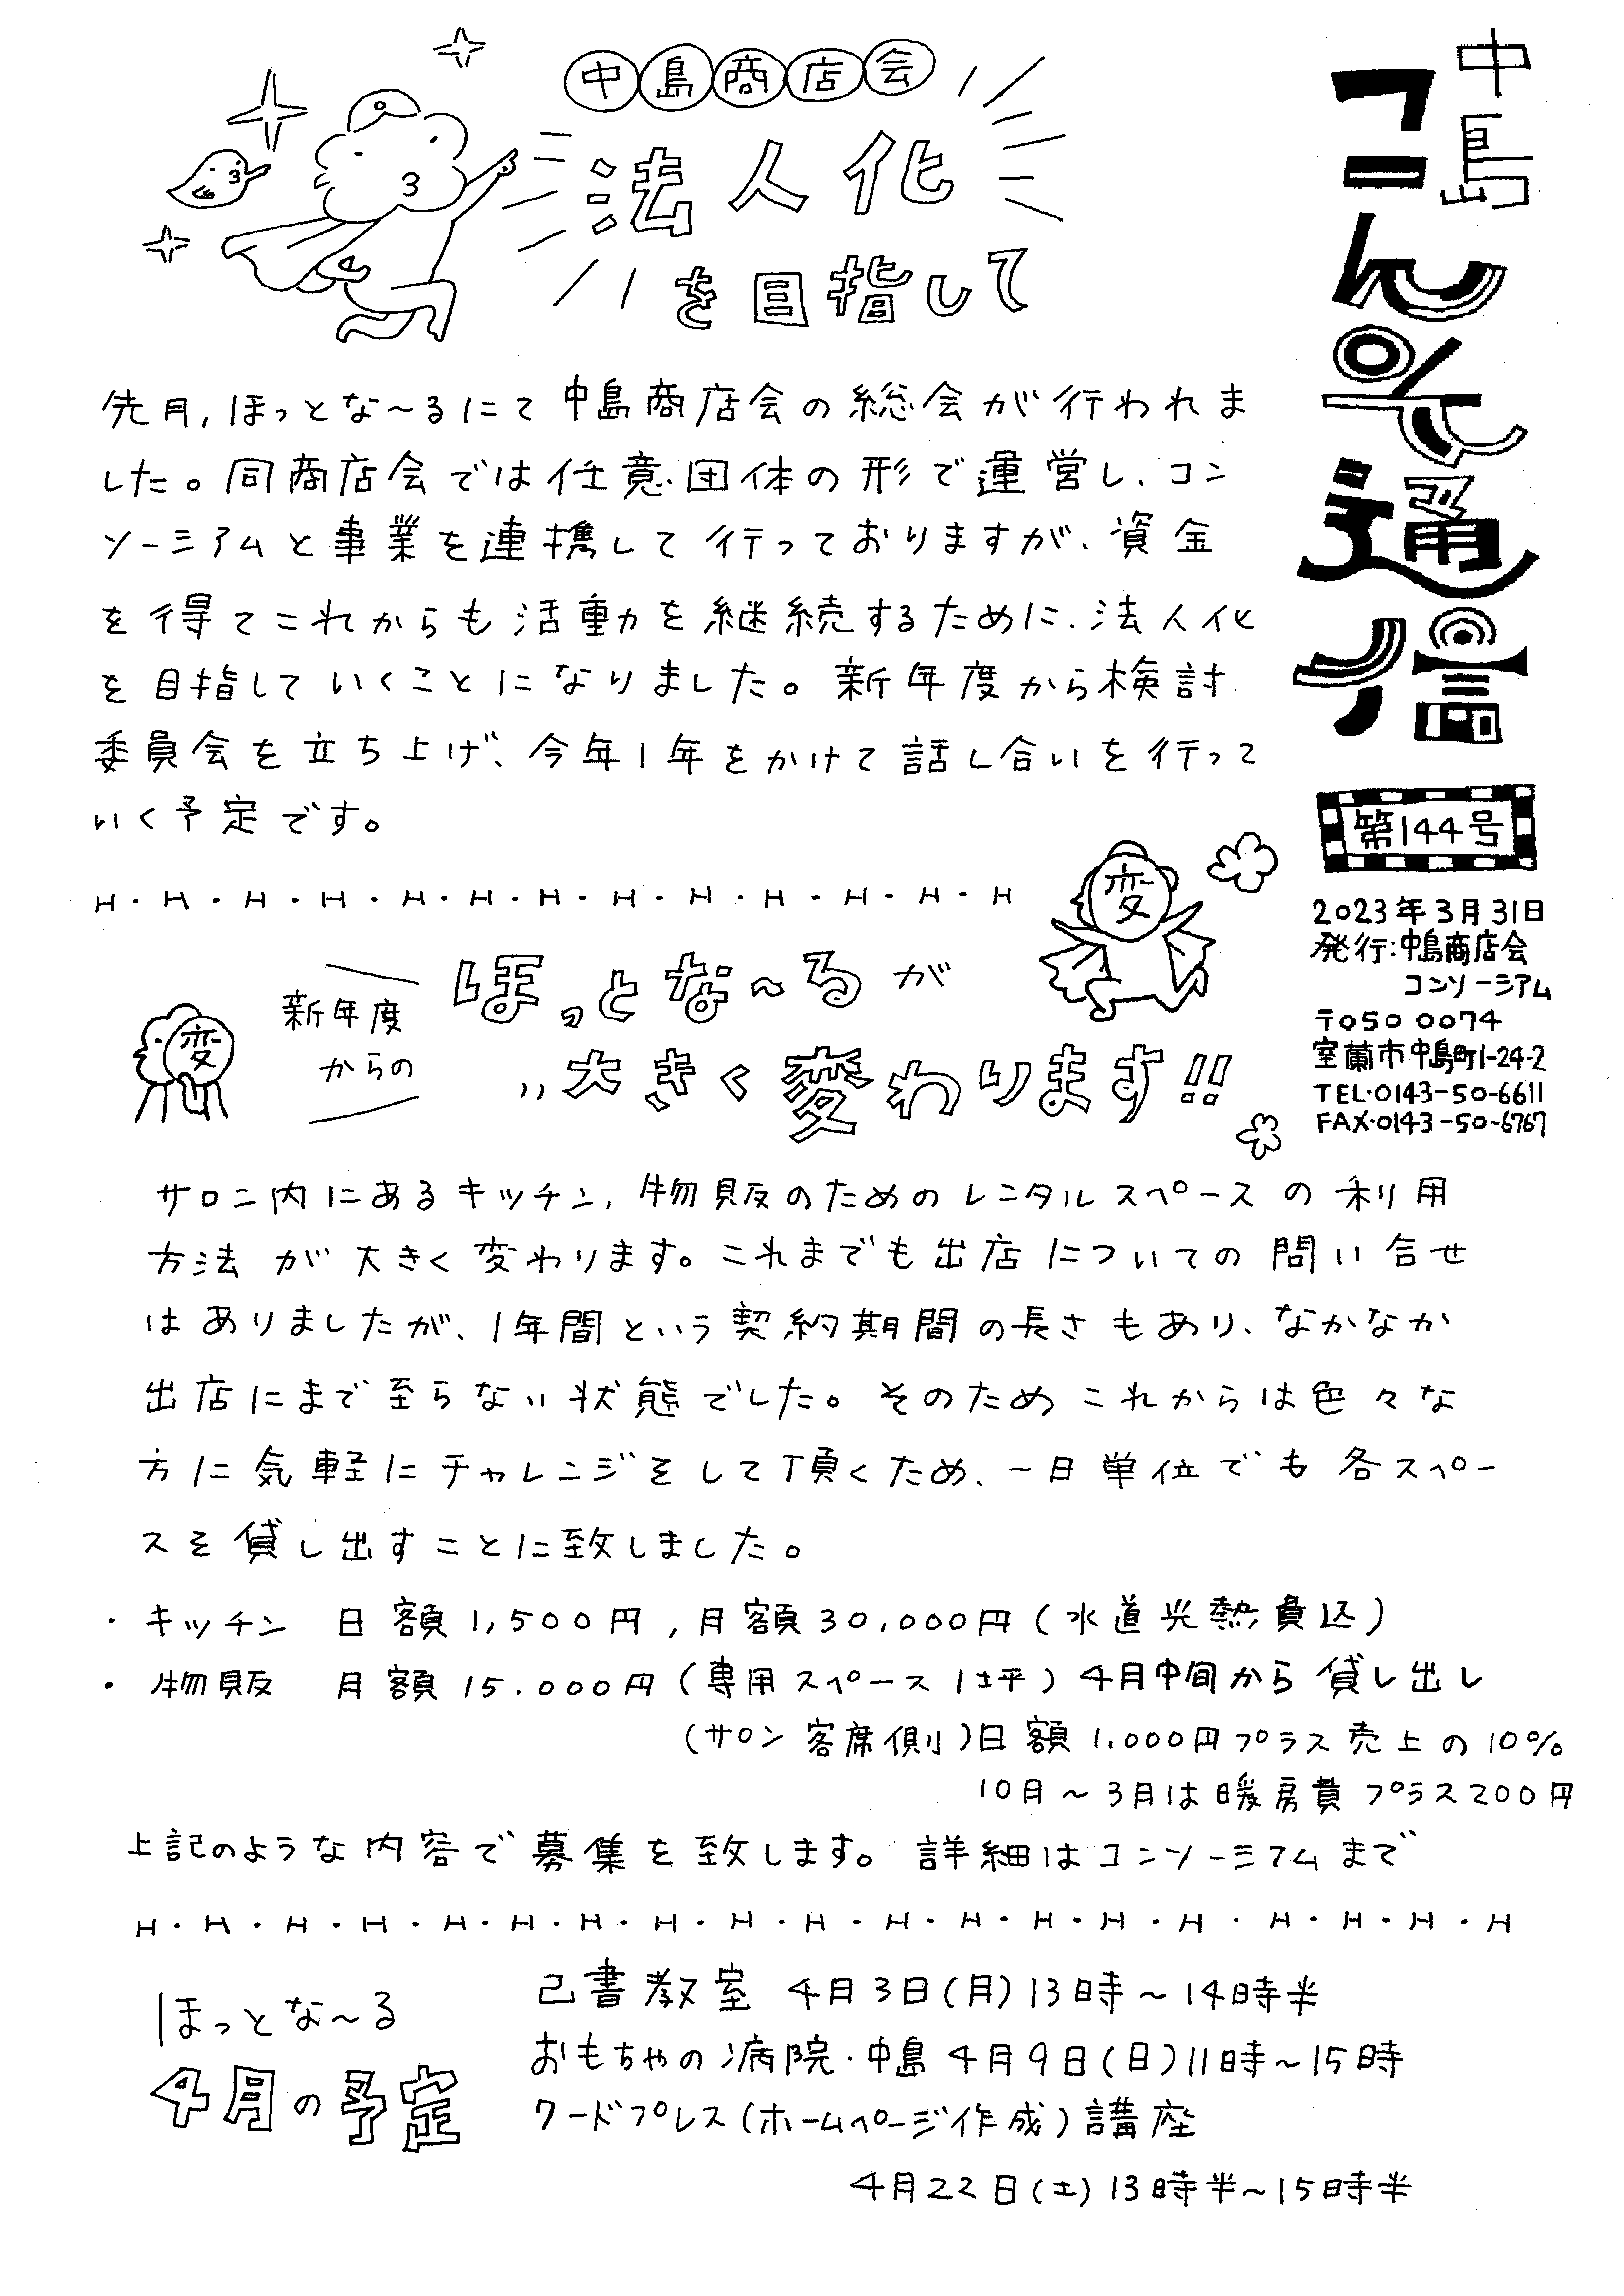 中島
コンそ通信
第144号
2023年3月31日
発行:中島商店会
コンソーシアム
〒050 0074
室蘭市中島町1-24-2
TEL・0143-50-6611
FAX・0143-50-6767
中島商店会
法人化
を目指して
先月,ほっとな〜るにて中島商店会の総会が行われま
した。同商店会では任意団体の形で運営し、コン
ソーシアムと事業を連携して行っておりますが、資金
を得てこれからも活動を継続するために、法人化
を目指していくことになりました。新年度から検討
委員会を立ち上げ、今年1年をかけて話し合いを行って
いく予定です。
H・H・H・H・H・H・H・H・H・H・H・H・H
変
変
新年度
からの
ほっとな〜るが
大きく変わります!!
サロン内にあるキッチン,物販のためのレンタルスペースの利用
方法が大きく変わります。これまでも出店についての問い合せ
はありましたが、1年間という契約期間の長さもあり、なかなか
出店にまで至らない状態でした。そのためこれからは色々な
方に気軽にチャレンジをして頂くため、一日単位でも各スペー
スを貸し出すことに致しました。
・キッチン 日額1,500円,月額30,000円(水道光熱費込)
・物販 月額15.000円(専用スペース1坪)4月中旬から貸し出し
(サロン客席側)日額1.000円プラス売上の10%
10月〜3月は暖房費プラス200円
上記のような内容で募集を致します。詳細はコンソーシアムまで
H・H・H・H・H・H・H・H・H・H・H・H・H・H・H・H・H・H・H
ほっとな〜る
4月の予定
己書教室 4月3日(月)13時〜14時半
おもちゃの病院・中島 4月9日(日)11時〜15時
ワードプレス(ホームページ作成)講座
4月22日(土)13時半〜15時半